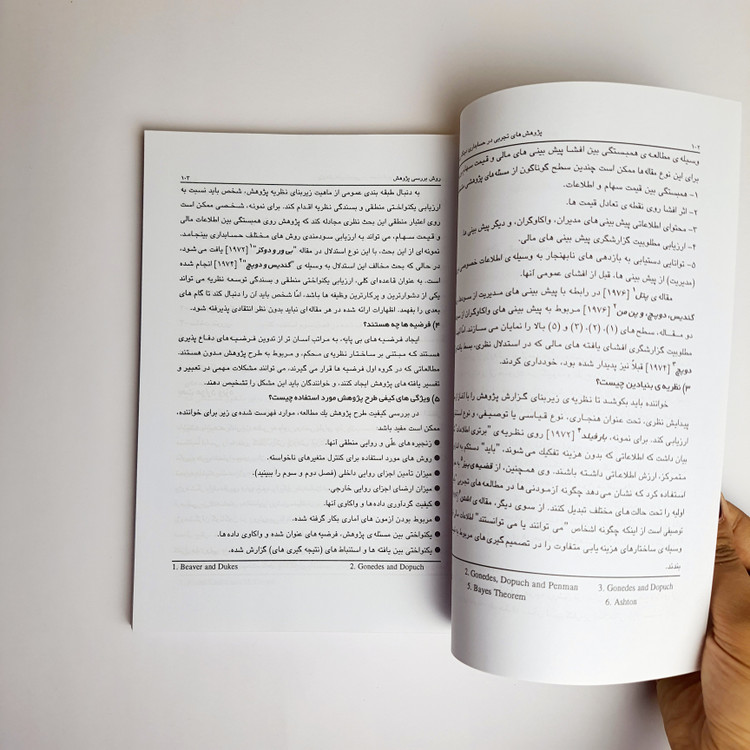 ۱۰۲
پژوهش های تجربی در حسابداری
وسیله ی مطالعه ی همبستگی بین افشا پیش بینی های مالی و قیمت سهام
برای این نوع مقاله‌ها ممکن است چندین سطح گوناگون از مسئله‌های پژوهشی
۱- همبستگی بین قیمت سهام و اطلاعات.
۲- اثر افشا روی نقطه ی تعادل قیمت ها.
۳- محتوای اطلاعاتی پیش بینی های مدیران، واکاوگران، و دیگر پیش بینی ها
۴- ارزیابی مطلوبیت گزارشگری پیش بینی های مالی.
۵- توانایی دستیابی به بازدهی های نابهنجار به وسیله ی اطلاعات خصوصی
(مدیریت) از پیش بینی ها، قبل از افشای عمومی آنها.
مقاله ی [۱۹۷۶] در رابطه با پیش بینی های مدیریت از
گندیس، دوپچ، و پن من [۱۹۷۶] مربوط به پیش بینی های واکاوگران از
دو مقاله، سطح‌های (۱)، (۲)، (۳) و (۵) بالا را نمایان می سازند.
مطلوبیت گزارشگری افشای یافته های مالی که در استدلال نظری، بسط یک
دوپچ۳ [۱۹۷۴] قبلاً نیز پدیدار شده بود، خودداری کردند.
۳) نظریه ی بنیادین چیست؟
خواننده باید بکوشد تا نظریه ی زیربنای گزارش پژوهش را با
پیدایش نظری، تحت عنوان هنجاری، نوع قیاسی یا توصیفی، و نوع
ارزیابی کند. برای نمونه، بارفیلد۴ [۱۹۷۲] روی نظریه ی "برتری اطلاعات
بیان داشت که اطلاعاتی که بدون هزینه تفکیک می شوند، "باید" دستکم به
متمرکز، ارزش اطلاعاتی داشته باشند. وی همچنین، از قضیه‌ی بیز۵
استفاده کرد که نشان می دهد چگونه آزمودنی ها در مطالعه‌های تجربی
اولیه را تحت حالت های مختلف تبدیل کنند. از سوی دیگر، مقاله ی اشتن
توصیفی است از اینکه چگونه اشخاص "می توانند یا می توانستند" اطلاعات
وسیله ی ساختارهای هزینه یابی متفاوت را در تصمیم گیری های مربوط
بندند.
2. Gonedes, Dopuch and Penman 3. Gonedes and Dopuch
5. Bayes Theorem 6. Ashton
روش بررسی پژوهش
۱۰۳
به دنبال طبقه بندی عمومی از ماهیت زیربنای نظریه پژوهش، شخص باید نسبت به
ارزیابی یکنواختی منطقی و بسندگی نظریه اقدام کند. برای نمونه، شخصی ممکن است
روی اعتبار منطقی این بحث نظری مجادله کند که پژوهش روی همبستگی بین اطلاعات مالی
و قیمت سهام، می تواند به ارزیابی سودمندی روش های مختلف حسابداری بینجامد.
نمونه ای از این بحث، با این نوع استدلال در مقاله "بی ور و دوکز"۱ [۱۹۷۲] یافت می شود.
در حالی که بحث مخالف این استدلال به وسیله ی "گندیس و دوپچ"۲ [۱۹۷۴] انجام شده
است. به عنوان قاعده‌ای کلی، ارزیابی یکنواختی منطقی و بسندگی توسعه نظریه می تواند
یکی از دشوارترین و پرکارترین وظیفه ها باشد، امّا شخص باید آن را دنبال کند تا گام های
بعدی را بفهمد. اظهارات ارائه شده در هر مقاله‌ای نباید بدون نظر انتقادی پذیرفته شود.
۴) فرضیه ها چه هستند؟
ایجاد فرضیه های بی پایه، به مراتب آسان تر از تدوین فرضیه های دفاع پذیری
هستند که مبتنی بر ساختار نظریه ی محکم، و مربوط به طرح پژوهش مدون هستند.
مطالعاتی که در گروه اول فرضیه ها قرار می گیرند، می توانند مشکلات مهمی در تعبیر و
تفسیر یافته های پژوهش ایجاد کنند، و خوانندگان باید این مشکل را تشخیص دهند.
۵) ویژگی های کیفی طرح پژوهش مورد استفاده چیست؟
در بررسی کیفیت طرح پژوهش یک مطالعه، موارد فهرست شده ی زیر برای خواننده،
ممکن است مفید باشد.
● زنجیره های علّی و روایی منطقی آنها.
● روش های مورد استفاده برای کنترل متغیرهای ناخواسته.
● میزان تأمین اجزای روایی داخلی (فصل دوم و سوم را ببینید).
● میزان ارضای اجزای روایی خارجی.
● کیفیت گردآوری داده ها و واکاوی آنها.
● مربوط بودن آزمون های آماری بکار گرفته شده.
● یکنواختی بین مسئله ی پژوهش، فرضیه های عنوان شده و واکاوی داده ها.
● یکنواختی بین یافته ها و استنباط های (نتیجه گیری های) گزارش شده.
1. Beaver and Dukes 2. Gonedes and Dopuch